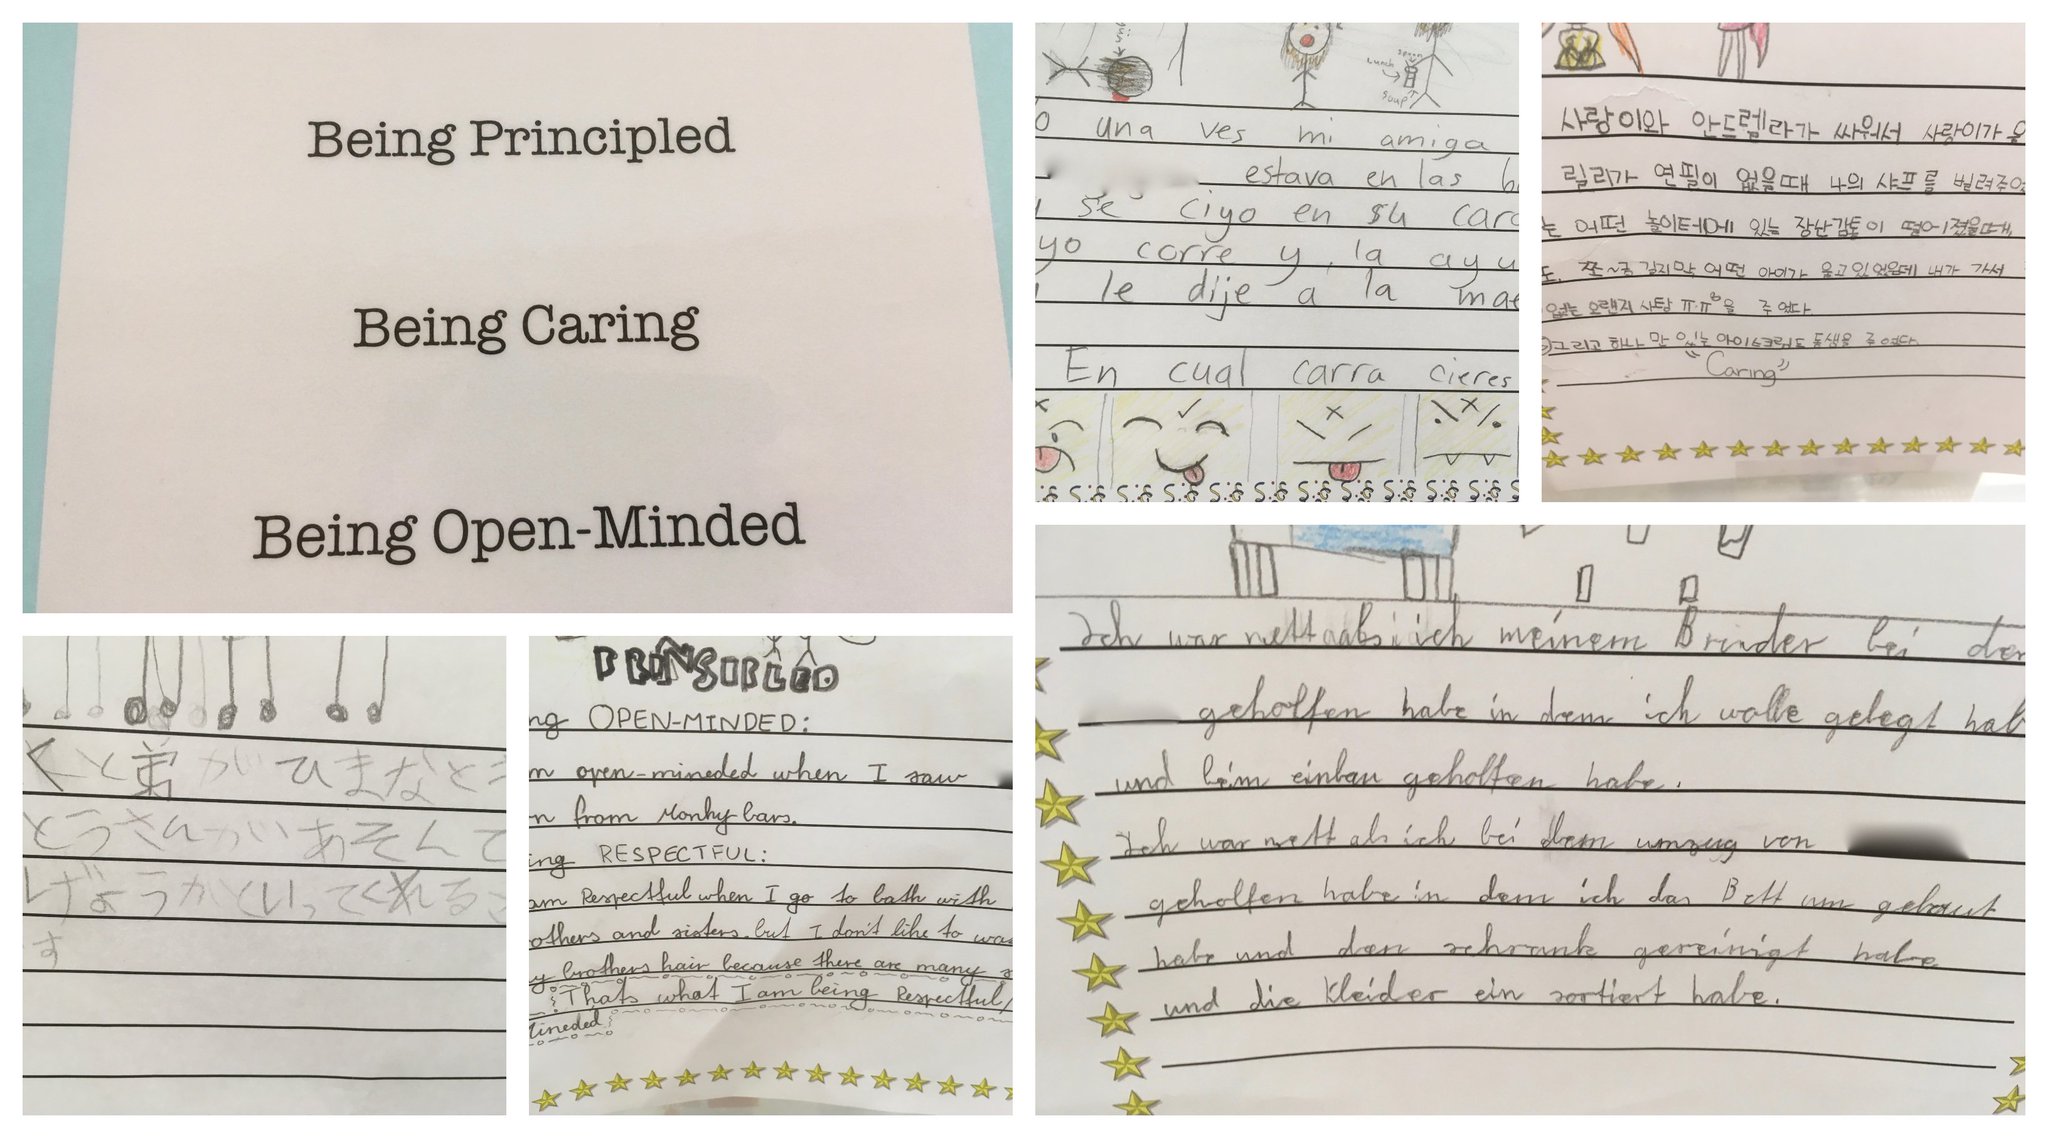 Being Principled
Being Caring
Being Open-Minded
lunch
soup
o una ves mi amiga
estava en las b
se ciyo en su carr
yo corre y la ayu
le dije a la mae
En cual carra cieres
사랑이와 안드렐라가 싸워서 사랑이가 울
릴리가 연필이 없을때 나의 샤프를 빌려주었
는 어떤 놀이터에 있는 장난감통이 떨어졌을때,
도. 쪼~국 걸지막 어떤 아이가 울고있었는데 내가 가서
없는 오랜지 사탕 ㅠ.ㅠ을 주었다
그리고 하나 만 있는 아이스크림도 동생을 주었다.
"Caring"
くと弟がひまなとき
とうさんがいあそんで
しげょうかといってくれるこ
す
PRINSIPLED
ng OPEN-MINDED:
m open-mineded when I saw
n from Monky bars.
ing RESPECTFUL:
am Respectful when I go to bath with
others and sisters. but I don't like to was
y brothers hair because there are many
Thats what I am being Respectful,
Mineded
Ich war nett aabs i ich meinem Bruder bei der
geholfen habe in dem ich wolle gelegt hab
und beim einbau geholfen habe.
Ich war nett als ich bei dem umzug von
geholfen habe in dem ich das Bett um gebaut
habe und den schrank gereinigt habe
und die Kleider ein sortiert habe.